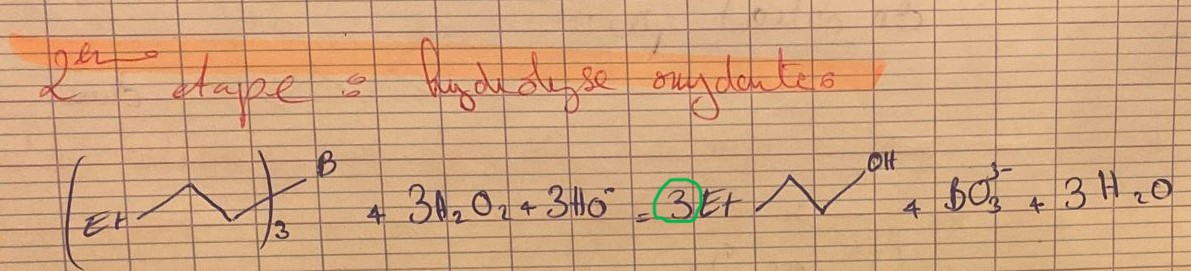 2em étape : hydrolyse oxydante
(Et )3 B + 3H2O2 + 3HO- = 3 Et OH + BO3 3- + 3H2O